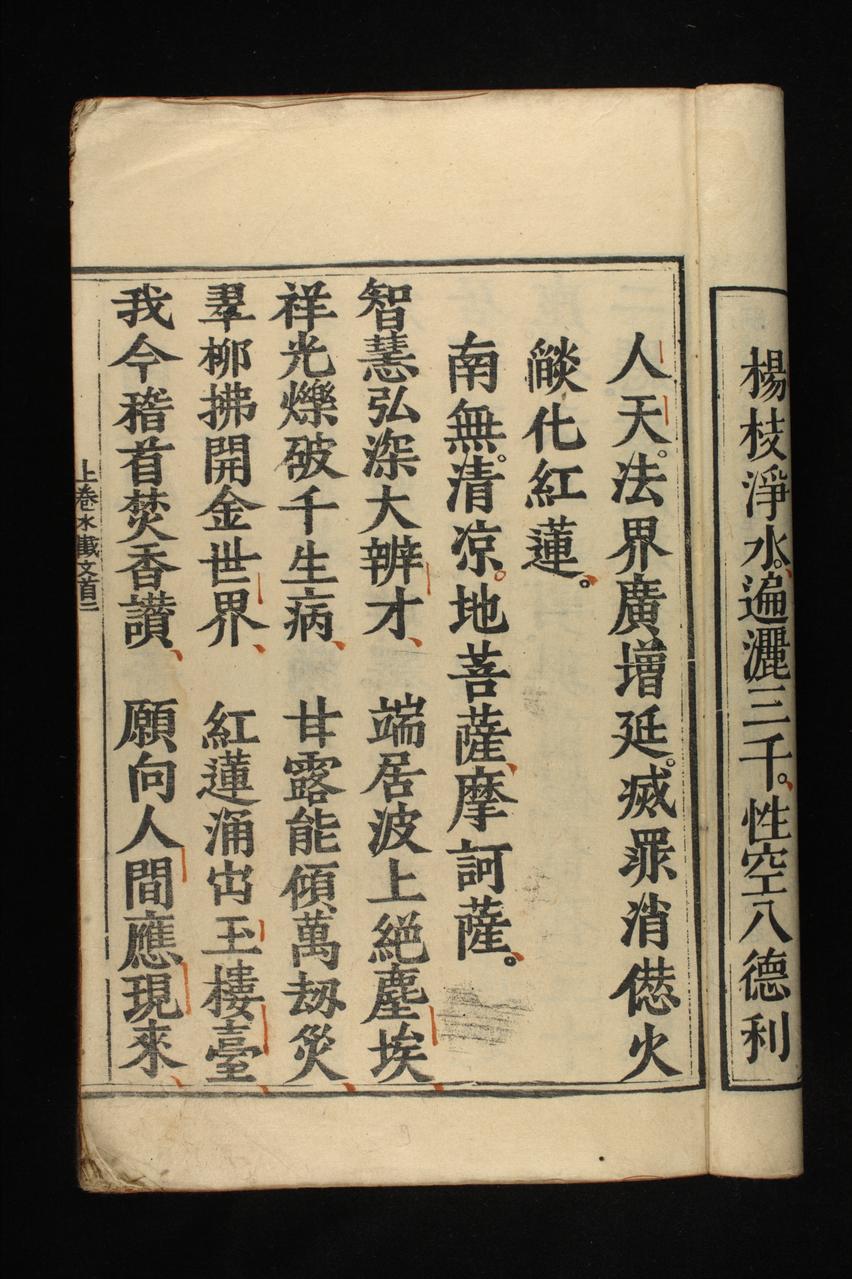 楊枝淨水。遍灑三千。性空八德利
人天。法界廣增延。滅罪消愆火
燄化紅蓮。
南無。清凉。地菩薩、摩訶薩。
智慧弘深大辨才、　端居波上絕塵埃
祥光爍破千生病、　甘露能傾萬劫災
羣栁拂開金世界、　紅蓮涌出玉樓臺
我今稽首焚香讚、　願向人間應現來
上卷水
文首二